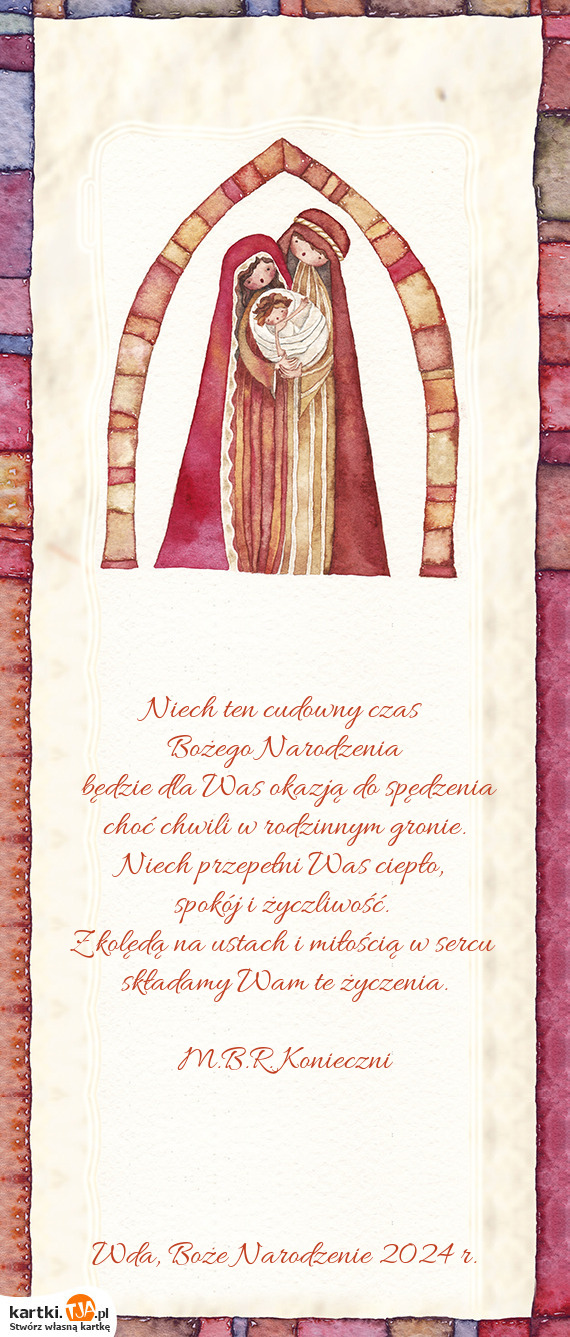 Niech ten cudowny czas
Bożego Narodzenia
będzie dla Was okazją do spędzenia
choć chwili w rodzinnym gronie.
Niech przepełni Was ciepło,
spokój i życzliwość.
Z kolędą na ustach i miłością w sercu
składamy Wam te życzenia.
M.B.R. Konieczni
Wda, Boże Narodzenie 2024 r.
kartki.TJA.pl
Stwórz własną kartkę